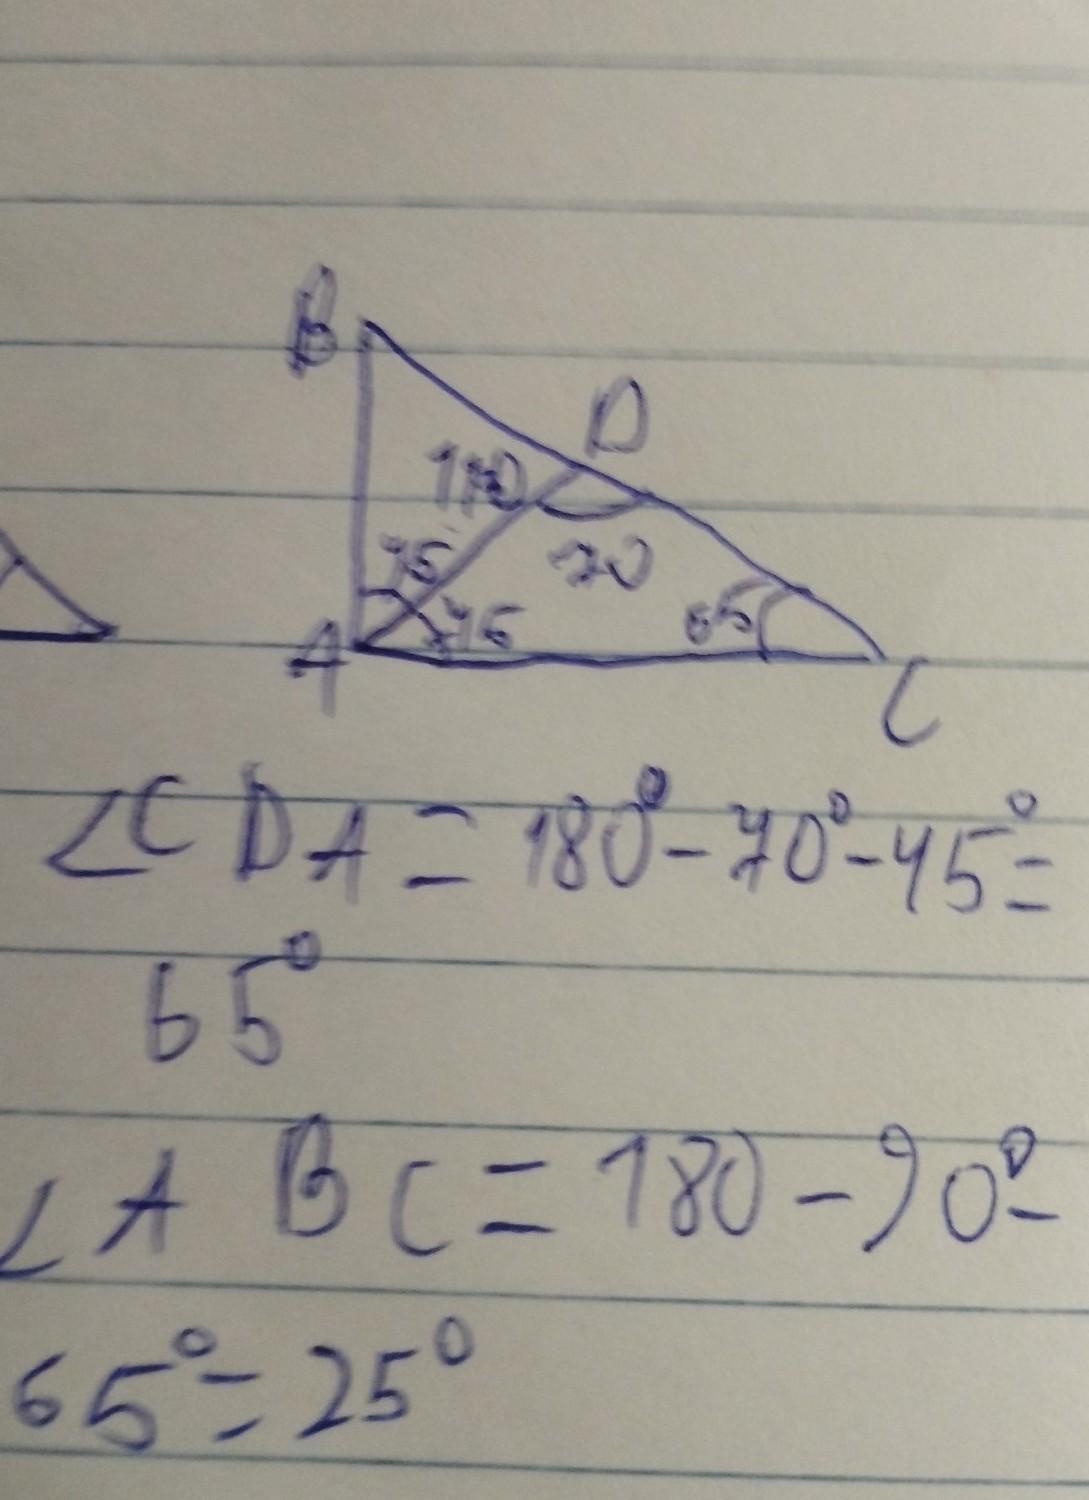 B
D
110
45
70
45
65
A
C
∠CDA = 180° - 70° - 45° =
65°
∠ABC = 180 - 90° -
65° = 25°